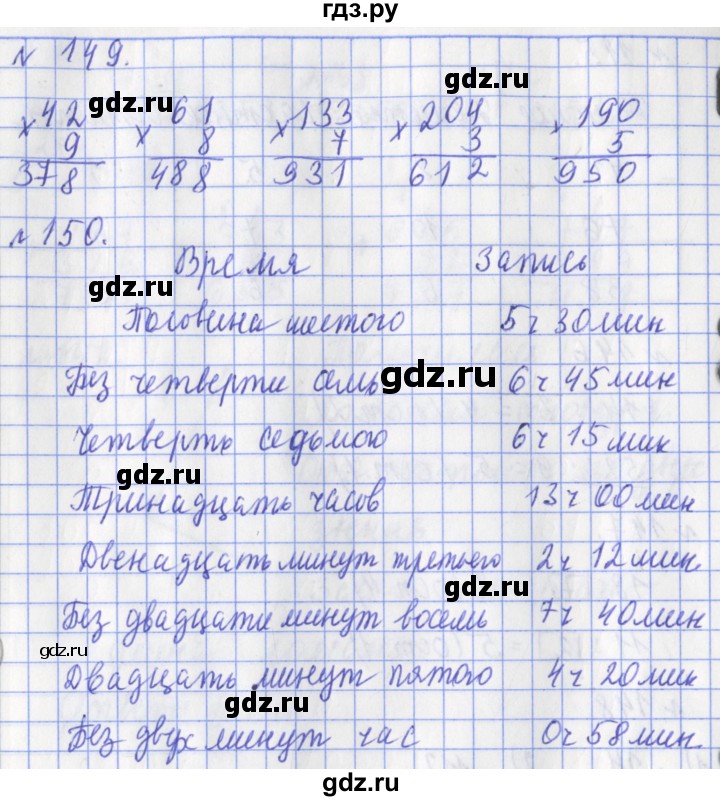 гдз.ру
№ 149.
gdz.ru
gdz.ru
× 42 × 61 × 133 × 204 × 190
9 8 7 3 5
378 488 931 612 950
№ 150.
Время Запись
gdz.ru
Половина шестого 5 ч 30 мин
Без четверти семь 6 ч 45 мин
gdz.ru
Четверть седьмого 6 ч 15 мин
gdz.ru
Тринадцать часов 13 ч 00 мин
Двенадцать минут третьего 2 ч 12 мин.
gdz.ru
Без двадцати минут восемь 7 ч 40 мин
gdz.ru
Двадцать минут пятого 4 ч 20 мин
gdz.ru
Без двух минут час 0 ч 58 мин.
gdz.ru